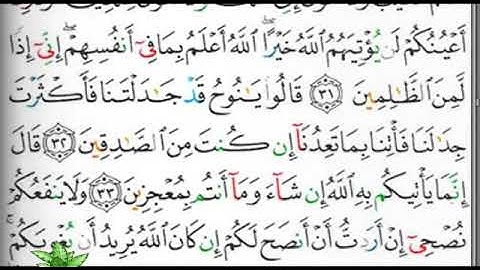 أَعْيُنُكُمْ لَن يُؤْتِيَهُمُ ٱللَّهُ خَيْرًا ۖ ٱللَّهُ أَعْلَمُ بِمَا فِىٓ أَنفُسِهِمْ ۖ إِنِّىٓ إِذًا
لَّمِنَ ٱلظَّٰلِمِينَ ﴿٣١﴾ قَالُوا۟ يَٰنُوحُ قَدْ جَٰدَلْتَنَا فَأَكْثَرْتَ
جِدَٰلَنَا فَأْتِنَا بِمَا تَعِدُنَآ إِن كُنتَ مِنَ ٱلصَّٰدِقِينَ ﴿٣٢﴾ قَالَ
إِنَّمَا يَأْتِيكُم بِهِ ٱللَّهُ إِن شَآءَ وَمَآ أَنتُم بِمُعْجِزِينَ ﴿٣٣﴾ وَلَا يَنفَعُكُمْ
نُصْحِىٓ إِنْ أَرَدتُّ أَنْ أَنصَحَ لَكُمْ إِن كَانَ ٱللَّهُ يُرِيدُ أَن يُغْوِيَكُمْ ۚ